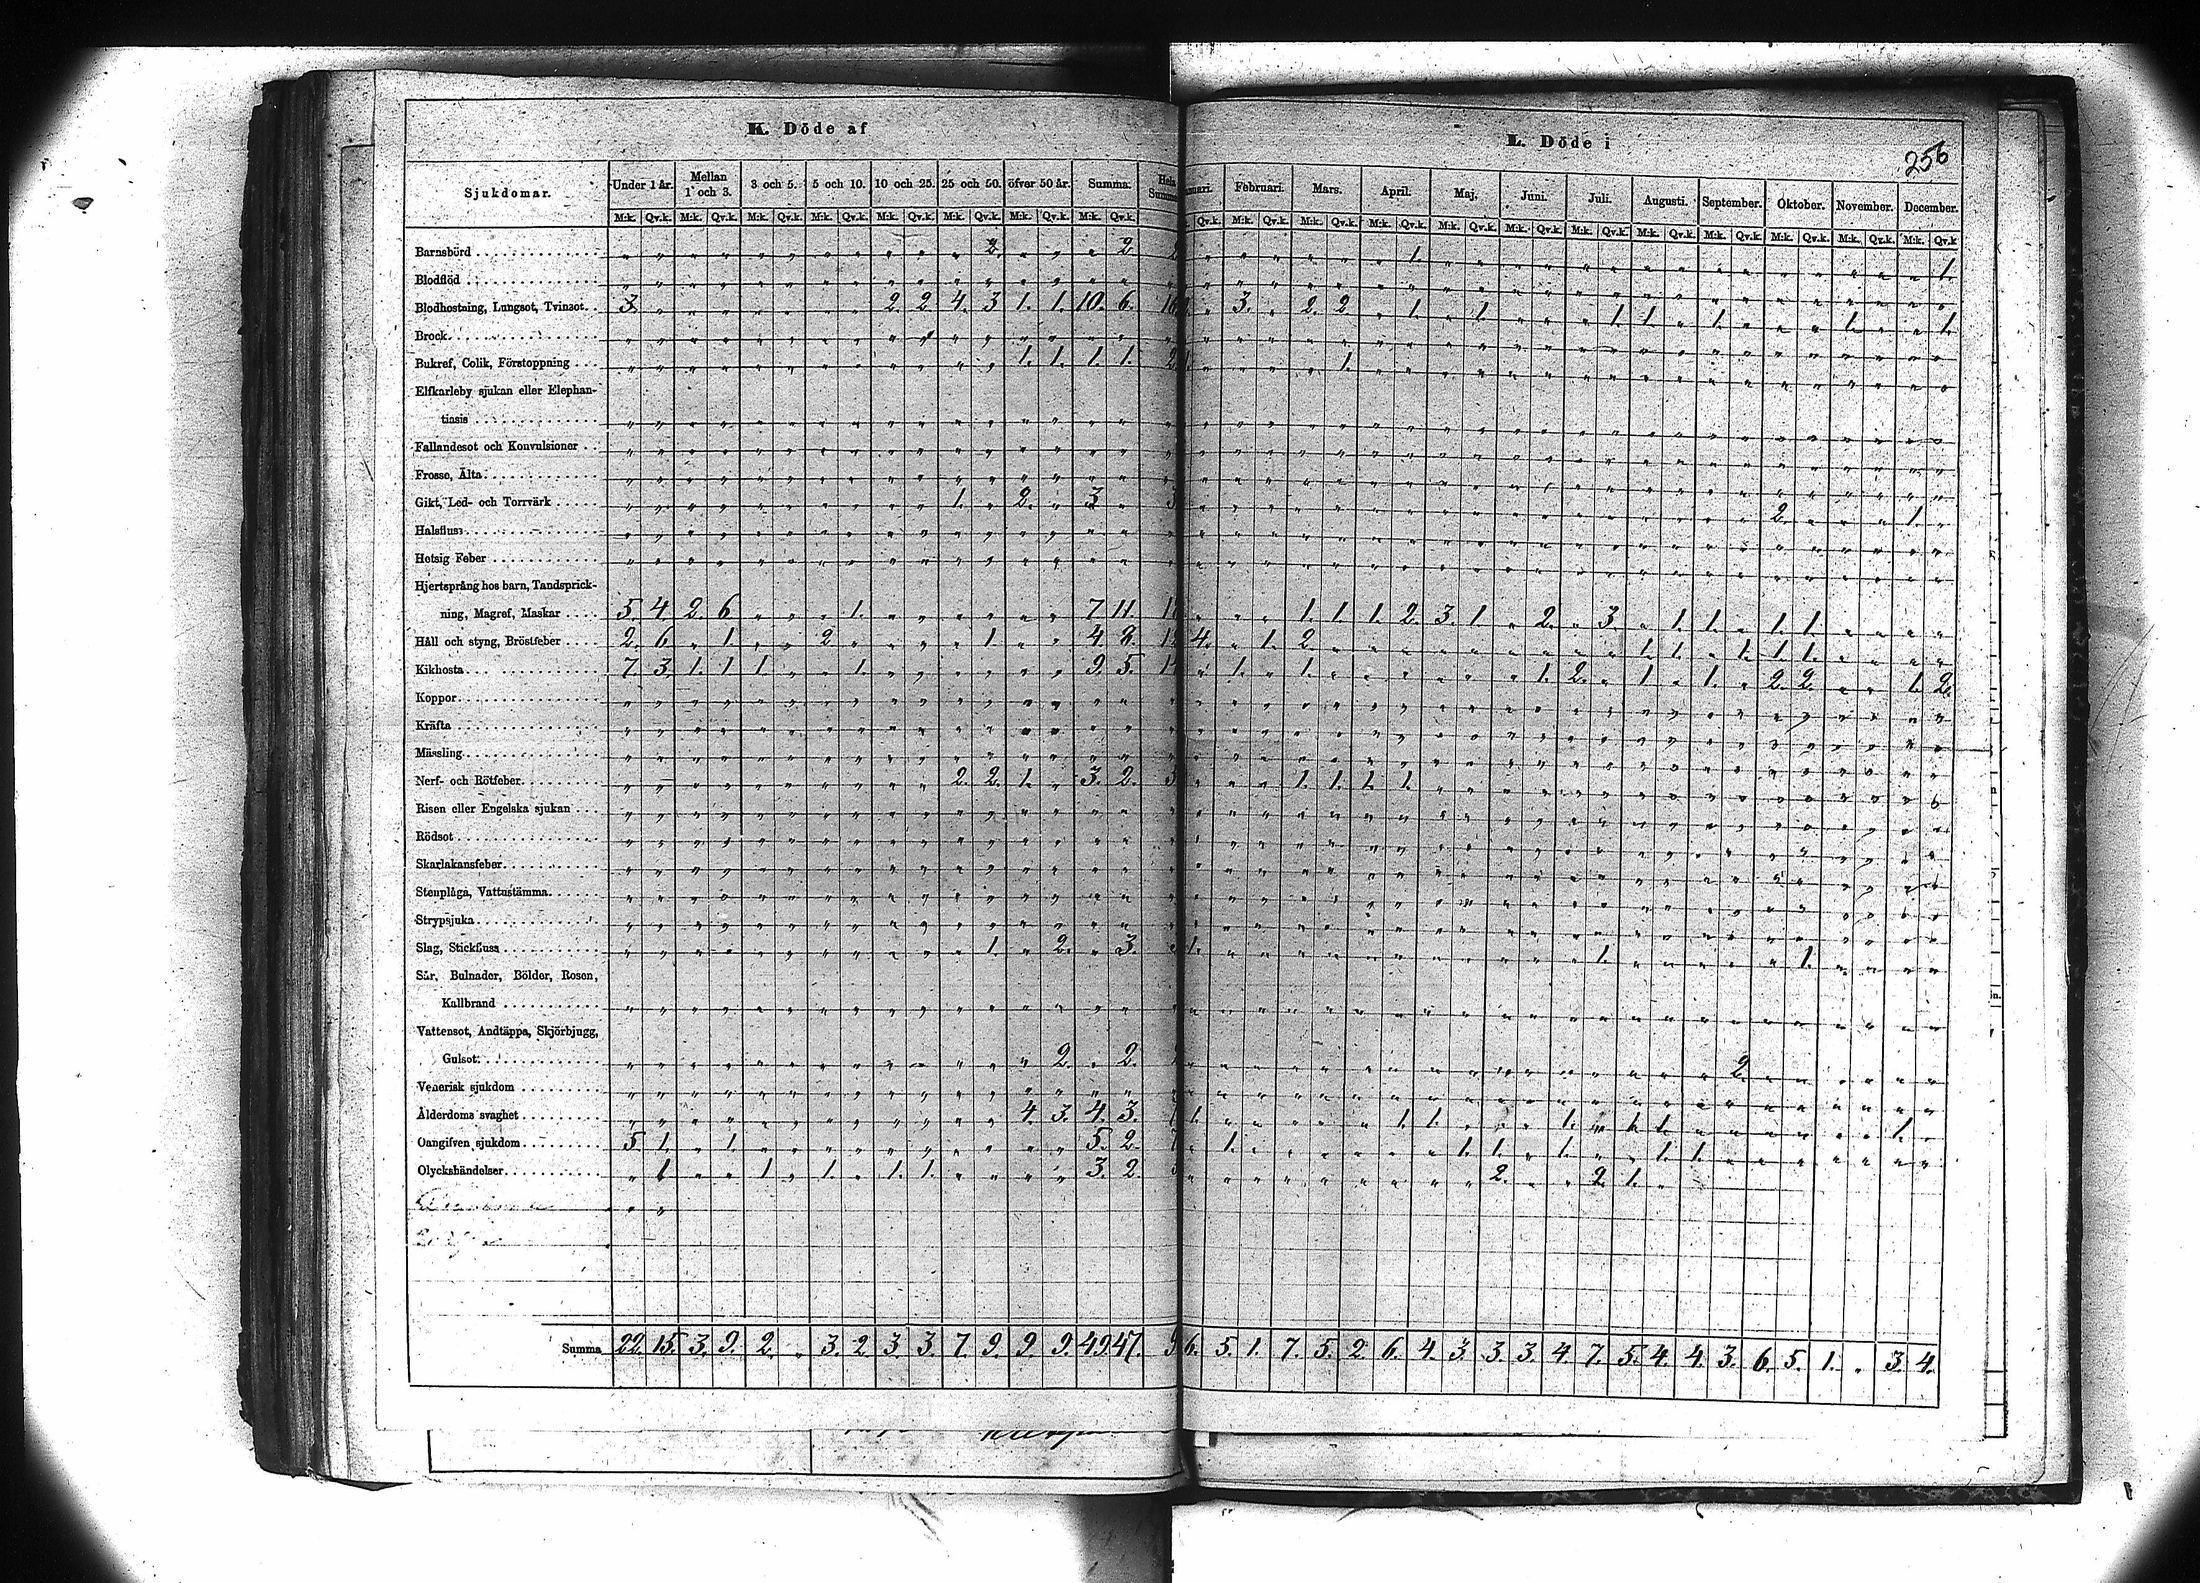 K. Döde af
L. Döde i
256
Sjukdomar. Under 1 år. Mellan 1 och 3. 3 och 5. 5 och 10. 10 och 25. 25 och 50. öfver 50 år. Summa. Hela Februari. Mars. April. Maj. Juni. Juli. Augusti. September. Oktober. November. December.
M:k. Qv.k. M:k. Qv.k. M:k. Qv.k. M:k. Qv.k. M:k. Qv.k. M:k. Qv.k. M:k. Qv.k. M:k. Qv.k. Qv.k. M:k. Qv.k. M:k. Qv.k. M:k. Qv.k. M:k. Qv.k. M:k. Qv.k. M:k. Qv.k. M:k. Qv.k. M:k. Qv.k. M:k. Qv.k. M:k. Qv.k. M:k. Qv.k
Barnsbörd 2. 2. 1. 1.
Blodflöd
Blodhostning, Lungsot, Tvinsot. 3. 2. 2. 4. 3 1. 1. 10. 6. 16 3. 2. 2. 1. 1. 1. 1. 1. 1. 1.
Brock
Bukref, Colik, Förstoppning 1. 1. 1. 1. 2 1. 1.
Elfkarleby sjukan eller Elephan-
tiasis
Fallandesot och Konvulsioner
Frosse, Älta
Gikt, Led- och Torrvärk 1. 2. 3 3 2. 1.
Halsfluss
Hetsig Feber
Hjertsprång hos barn, Tandsprick-
ning, Magref, Maskar 5. 4. 2. 6. 1. 7. 11. 1. 1. 1. 2. 3. 1. 2. 3. 1. 1. 1. 1.
Håll och styng, Bröstfeber 2. 6. 1. 2. 1. 4. 8. 4. 1. 2. 1. 1. 1. 1. 1.
Kikhosta 7. 3. 1. 1. 1. 1. 9. 5. 1. 1. 1. 2. 1. 1. 2. 2. 1. 2.
Koppor
Kräfta
Mässling
Nerf- och Rötfeber 2. 2. 1. 3. 2. 5 1. 1. 1. 1.
Risen eller Engelska sjukan
Rödsot
Skarlakansfeber
Stenplåga, Vattustämma
Strypsjuka
Slag, Stickfluss 1. 2. 3. 1. 1. 1.
Sår, Bulnader, Bölder, Rosen,
Kallbrand
Vattensot, Andtäppa, Skjörbjugg,
Gulsot 2. 2. 2.
Venerisk sjukdom
Ålderdoms svaghet 4. 3. 4. 3. 1. 1. 1. 1. 1. 1. 1.
Oangifven sjukdom 5. 1. 1. 5. 2. 7 1. 1. 1. 1. 1. 1.
Olyckshändelser 1 1. 1. 1. 1. 3. 2. 2. 2. 1.
Summa 22. 15. 3. 9. 2. 3. 2. 3. 3. 7. 9. 9. 9. 49. 47. 9 6. 5. 1. 7. 5. 2. 6. 4. 3. 3. 3. 4. 7. 5. 4. 4. 3. 6. 5. 1. 3. 4.